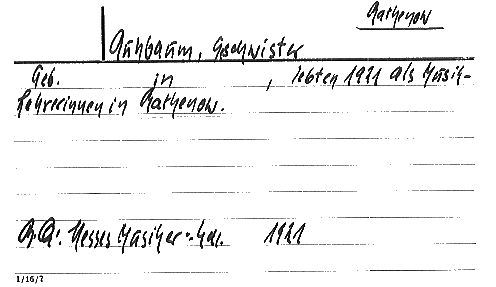 Rathenow
Ruhbaum, Geschwister
Geb. in , lebten 1921 als Musik-
lehrerinnen in Rathenow.
Hesses Musiker- 1921
1/16/7